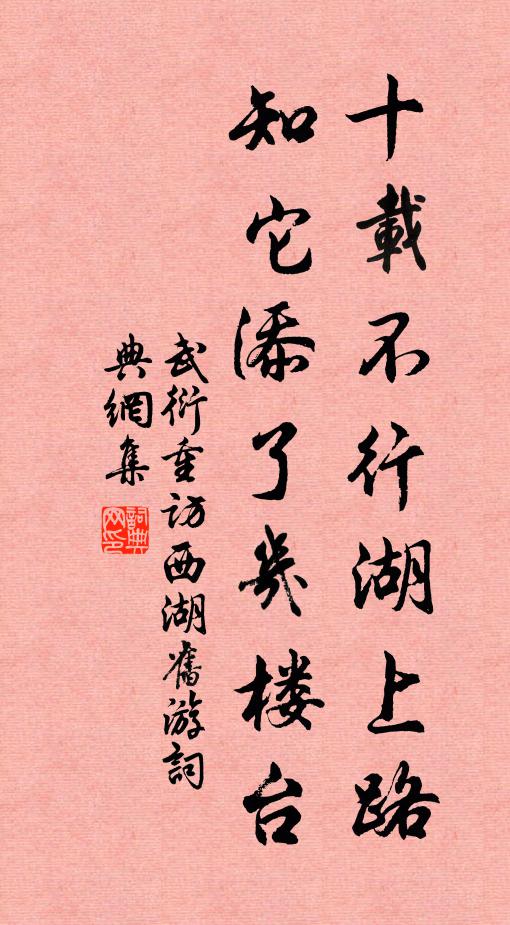 十載不行湖上路
知它添了幾楼台
武衍重訪西湖舊游詞
典網集
詞典网印